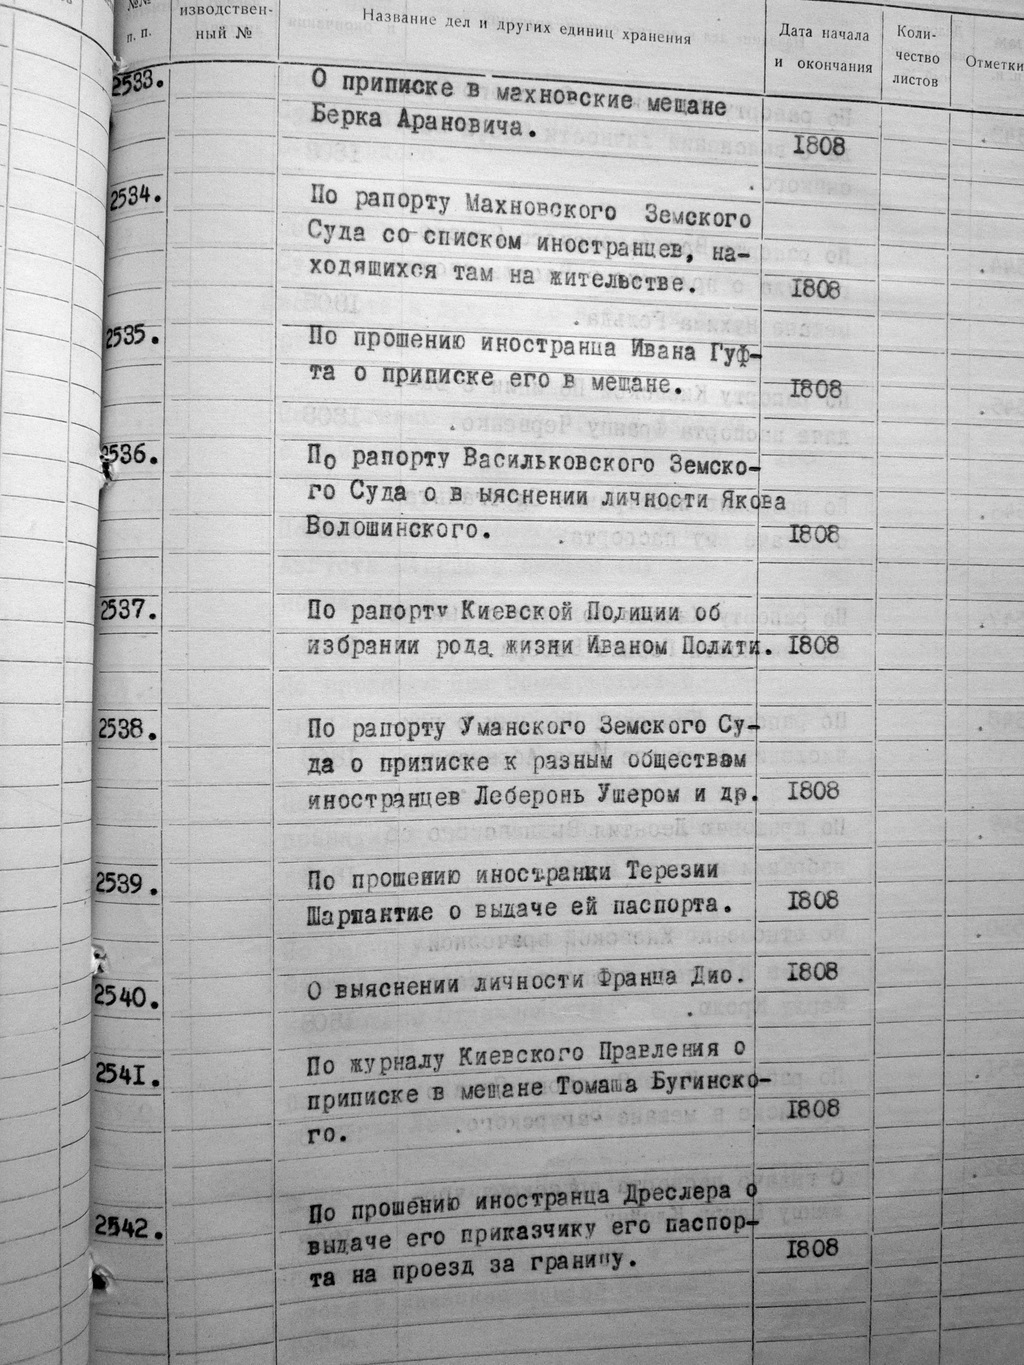 №№
п. п.
изводствен-
ный №
Название дел и других единиц хранения
Дата начала
и окончания
Коли-
чество
листов
Отметки
2533.
О приписке в махновские мещане
Берка Арановича.
1808
2534.
По рапорту Махновского Земского
Суда со списком иностранцев, на-
ходящихся там на жительстве.
1808
2535.
По прошению иностранца Ивана Гуф-
та о приписке его в мещане.
1808
2536.
По рапорту Васильковского Земско-
го Суда о в ыяснении личности Якова
Волошинского.
1808
2537.
По рапорту Киевской Полиции об
избрании рода жизни Иваном Полити.
1808
2538.
По рапорту Уманского Земского Су-
да о приписке к разным обществам
иностранцев Леберонь Ушером и др.
1808
2539.
По прошению иностранки Терезии
Шарпантие о выдаче ей паспорта.
1808
2540.
О выяснении личности Франца Дио.
1808
2541.
По журналу Киевского Правления о
приписке в мещане Томаша Бугинско-
го.
1808
2542.
По прошению иностранца Дреслера о
выдаче его приказчику его паспор-
та на проезд за границу.
1808